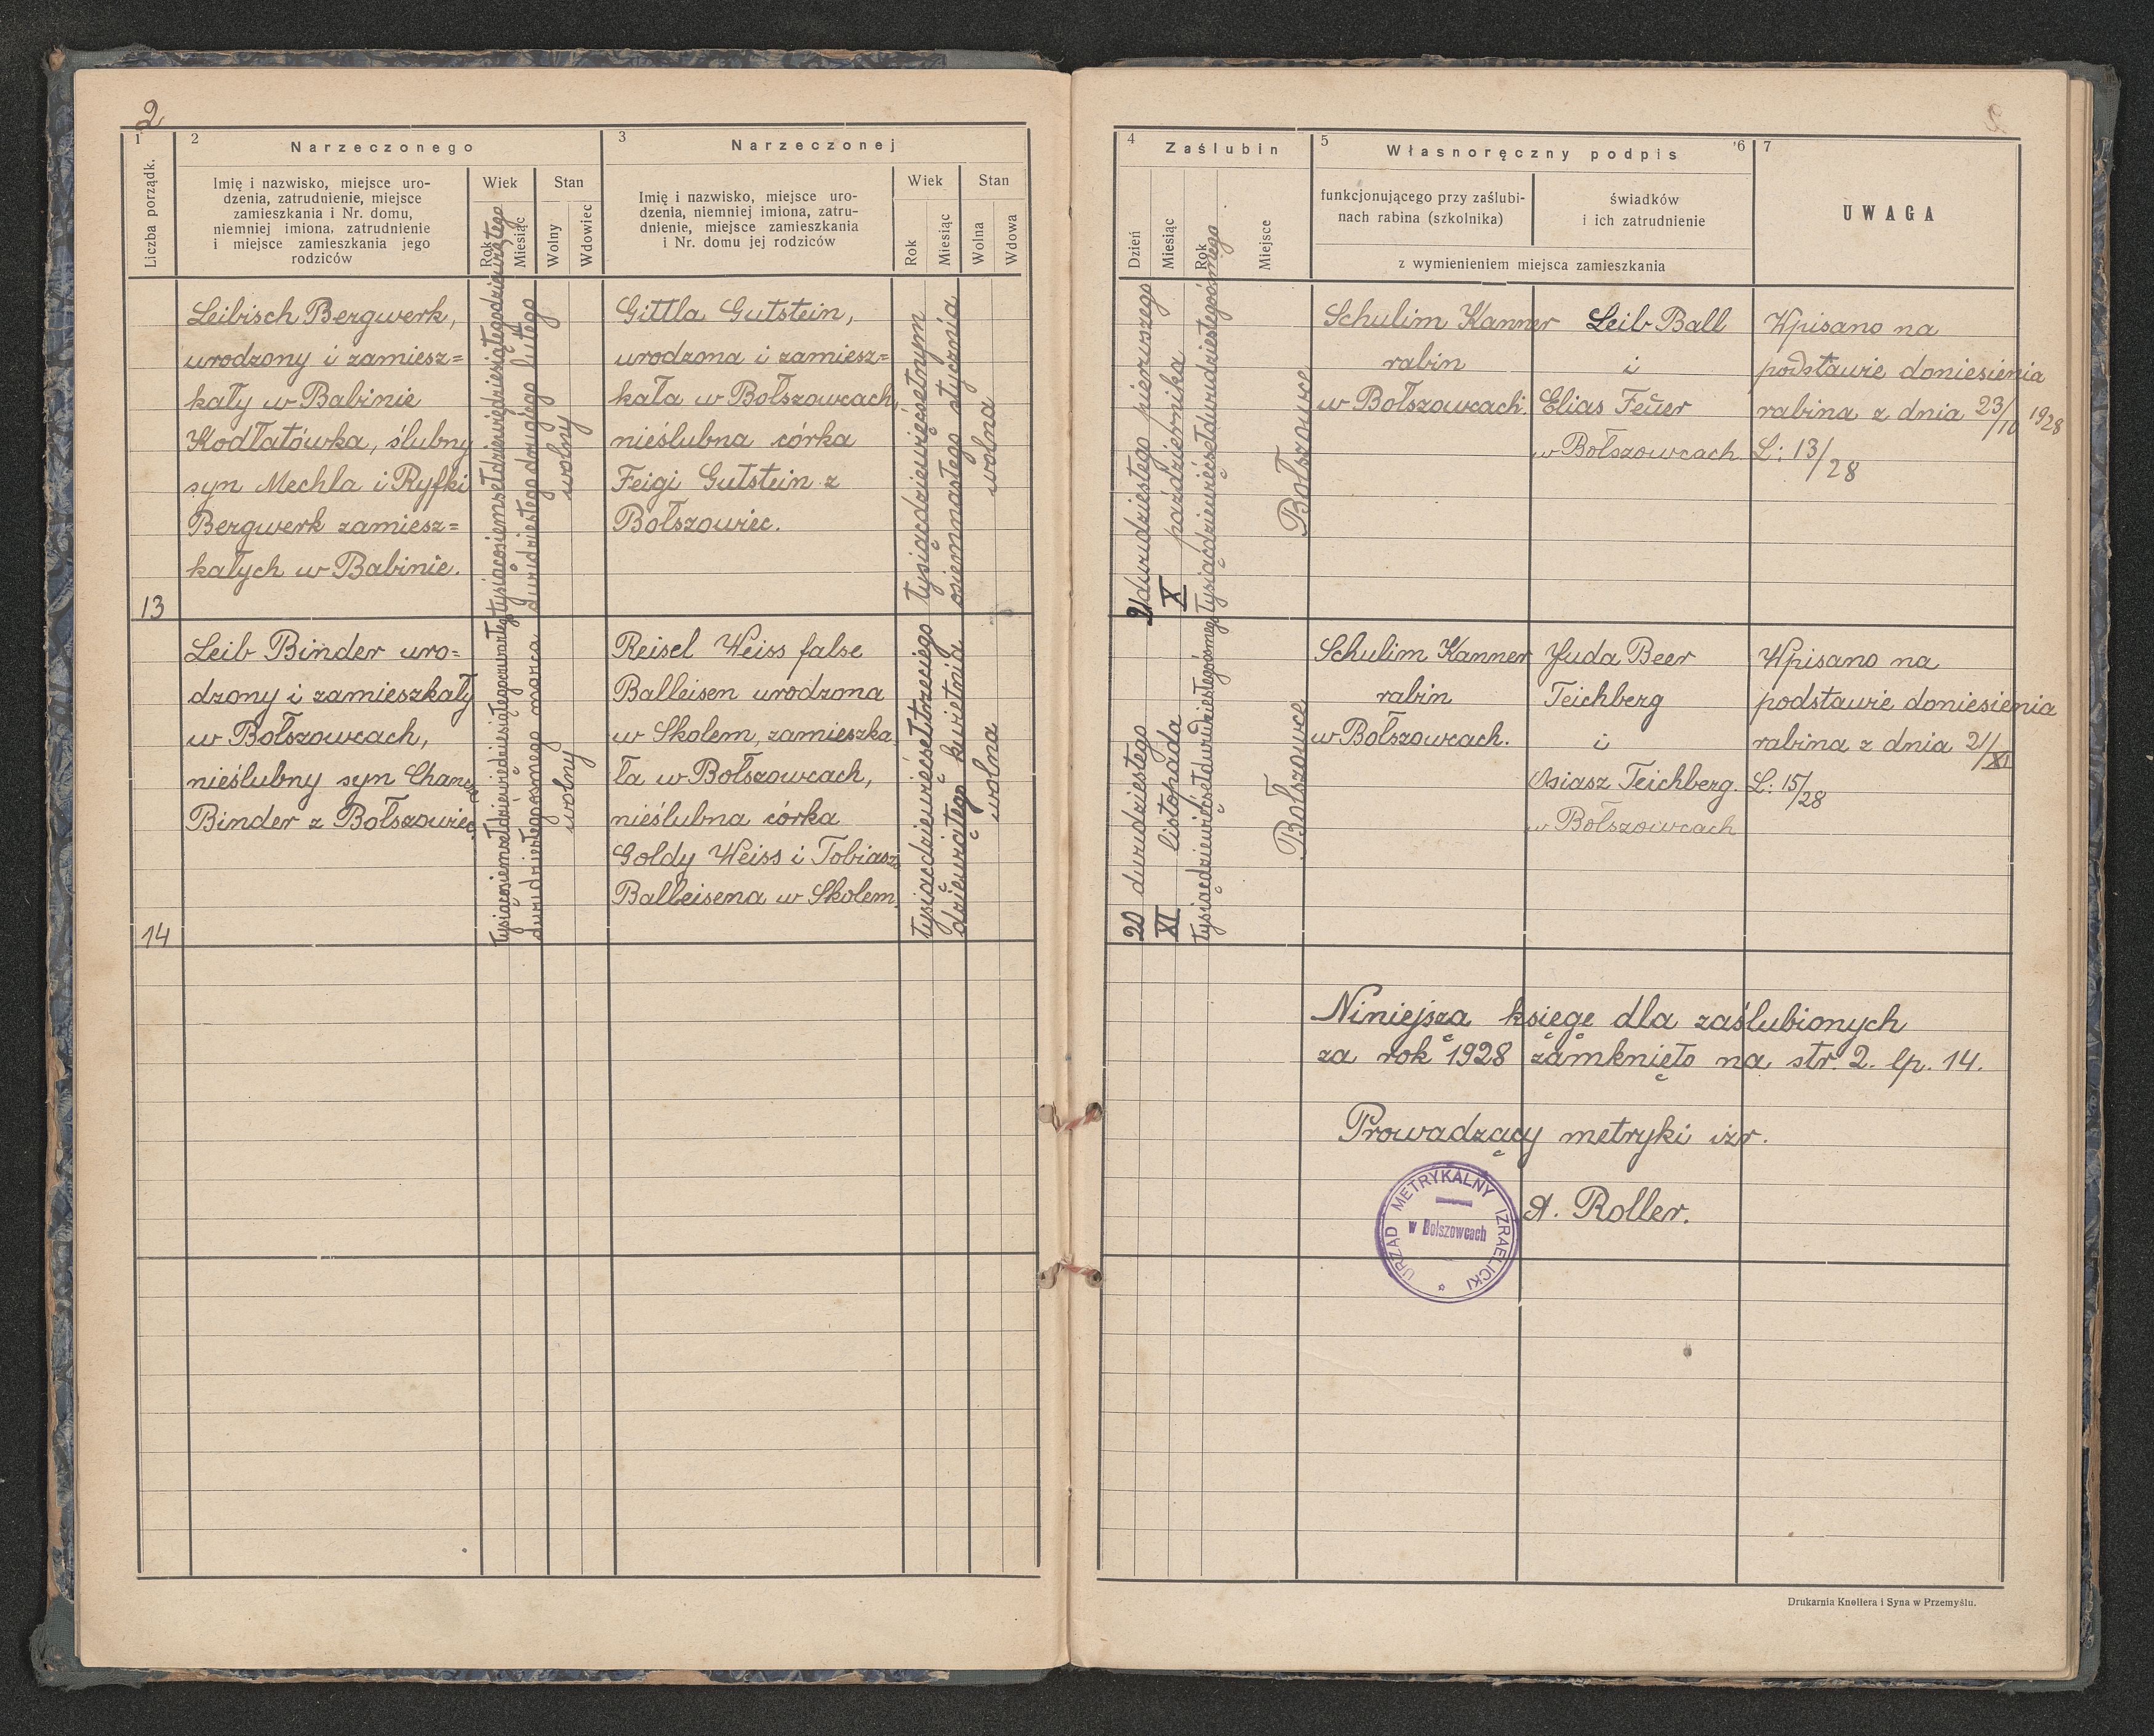 2
1
2
Narzeczonego
3
Narzeczonej
Liczba porządk.
Imię i nazwisko, miejsce uro-
dzenia, zatrudnienie, miejsce
zamieszkania i Nr. domu,
niemniej imiona, zatrudnienie
i miejsce zamieszkania jego
rodziców
Wiek
Rok
Miesiąc
Stan
Wolny
Wdowiec
Imię i nazwisko, miejsce uro-
dzenia, niemniej imiona, zatru-
dnienie, miejsce zamieszkania
i Nr. domu jej rodziców
Wiek
Rok
Miesiąc
Stan
Wolna
Wdowa
13
Leibisch Bergwerk,
urodzony i zamiesz=
kały w Babinie
Kodłatówka, ślubny
syn Mechla i Ryfki
Bergwerk zamiesz=
kałych w Babinie.
tysiącośmsetdziewiędziesiątegodziewiątego
dwudziestego drugiego lutego
wolny
Gittla Gutstein,
urodzona i zamiesz=
kała w Bołszowcach,
nieślubna córka
Feigi Gutstein z
Bołszowiec.
tysiącdziewięćsetnym
osiemnastego stycznia
wolna
14
Leib Binder uro=
dzony i zamieszkały
w Bołszowcach,
nieślubny syn Chany
Binder z Bołszowiec.
dwudziestegoósmego marca
wolny
Reisel Weiss false
Balleisen urodzona
w Skolem, zamieszka
ła w Bołszowcach,
nieślubna córka
Goldy Weiss i Tobiasza
Balleisena w Skolem.
tysiącdziewięćsettrzeciego
dziewiątego kwietnia
wolna
4
Zaślubin
5
Własnoręczny podpis
6
7
Dzień
Miesiąc
Rok
Miejsce
funkcjonującego przy zaślubi-
nach rabina (szkolnika)
świadków
i ich zatrudnienie
z wymienieniem miejsca zamieszkania
UWAGA
21 dwudziestego pierwszego
X października
tysiącdziewięćsetdwudziestegoósmego
Bołszowce
Schulim Kanner
rabin
w Bołszowcach.
Leib Ball
i
Elias Feuer
w Bołszowcach.
Wpisano na
podstawie doniesienia
rabina z dnia 23/10 1928
L: 13/28
20 dwudziestego
XI listopada
tysiącdziewięćsetdwudziestegoósmego
Bołszowce
Schulim Kanner
rabin
w Bołszowcach.
Juda Beer
Teichberg
i
Osiasz Teichberg.
w Bołszowcach
Wpisano na
podstawie doniesienia
rabina z dnia 21/XI
L: 15/28
Niniejszą księgę dla zaślubionych
za rok 1928 zamknięto na str. 2. lp. 14.
Prowadzący metryki izr.
A. Roller.
URZĄD METRYKALNY IZRAELICKI
w Bolszowcach
Drukarnia Knollera i Syna w Przemyślu.